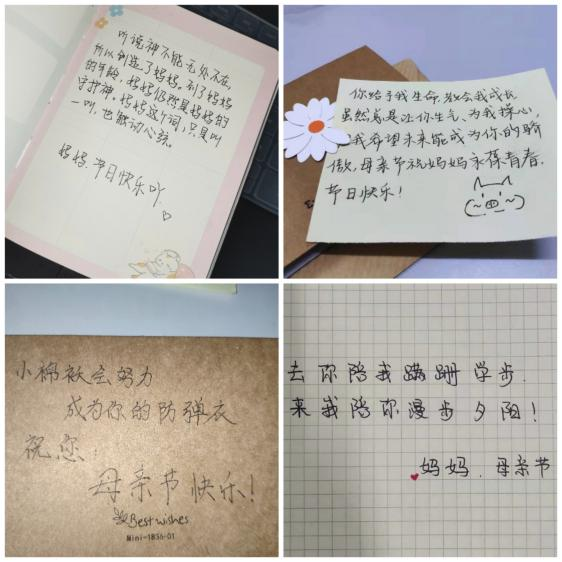 听说神不能无处不在,
所以创造了妈妈。到了妈妈
的年龄,妈妈仍然是妈妈的
守护神。妈妈这个词,只是叫
一叫,也触动心弦。
妈妈,节日快乐吖
你给予我生命,教会我成长
虽然总是让你生气,为我操心,
我希望未来能成为你的骄
傲,母亲节祝妈妈永葆青春,
节日快乐!
小棉袄会努力
成为你的防弹衣
祝您:
母亲节快乐!
Best wishes
Mini-1836-01
去你陪我蹒跚学步.
来我陪你漫步夕阳!
妈妈.母亲节